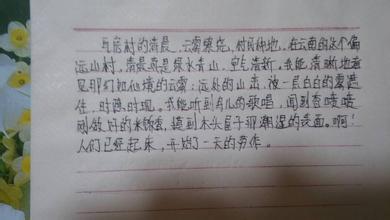 瓦房村的清晨，云雾缭绕，村民种地。在云南的这个偏
远山村，清晨真是绿水青山，空气清新，我能清晰地看
见那幻如仙境的云雾；远处的山峦，被一层白白的雾遮
住，时隐时现，我能听到鸟儿的歌唱，闻到香喷喷
刚做好的米饭香，摸到木头屋子那潮湿的表面。啊！
人们已经起床，开始了一天的劳作。